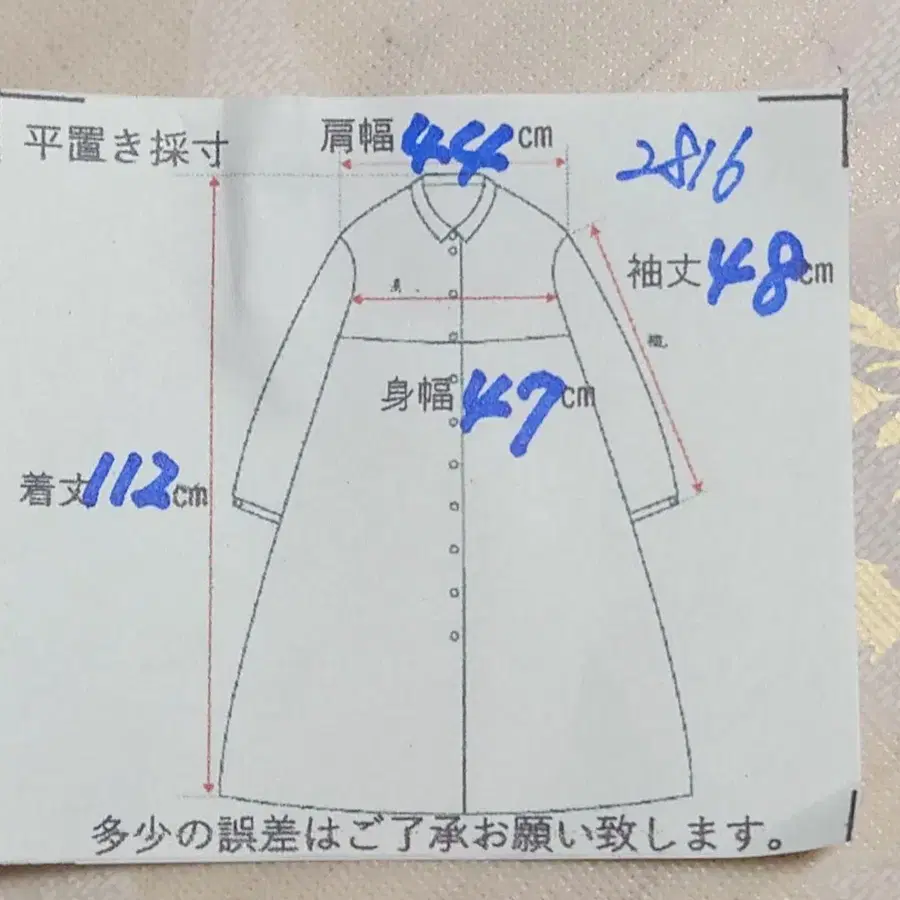 平置き採寸
肩幅44cm
2816
袖丈48cm
身幅47cm
着丈112cm
多少の誤差はご了承お願い致します。